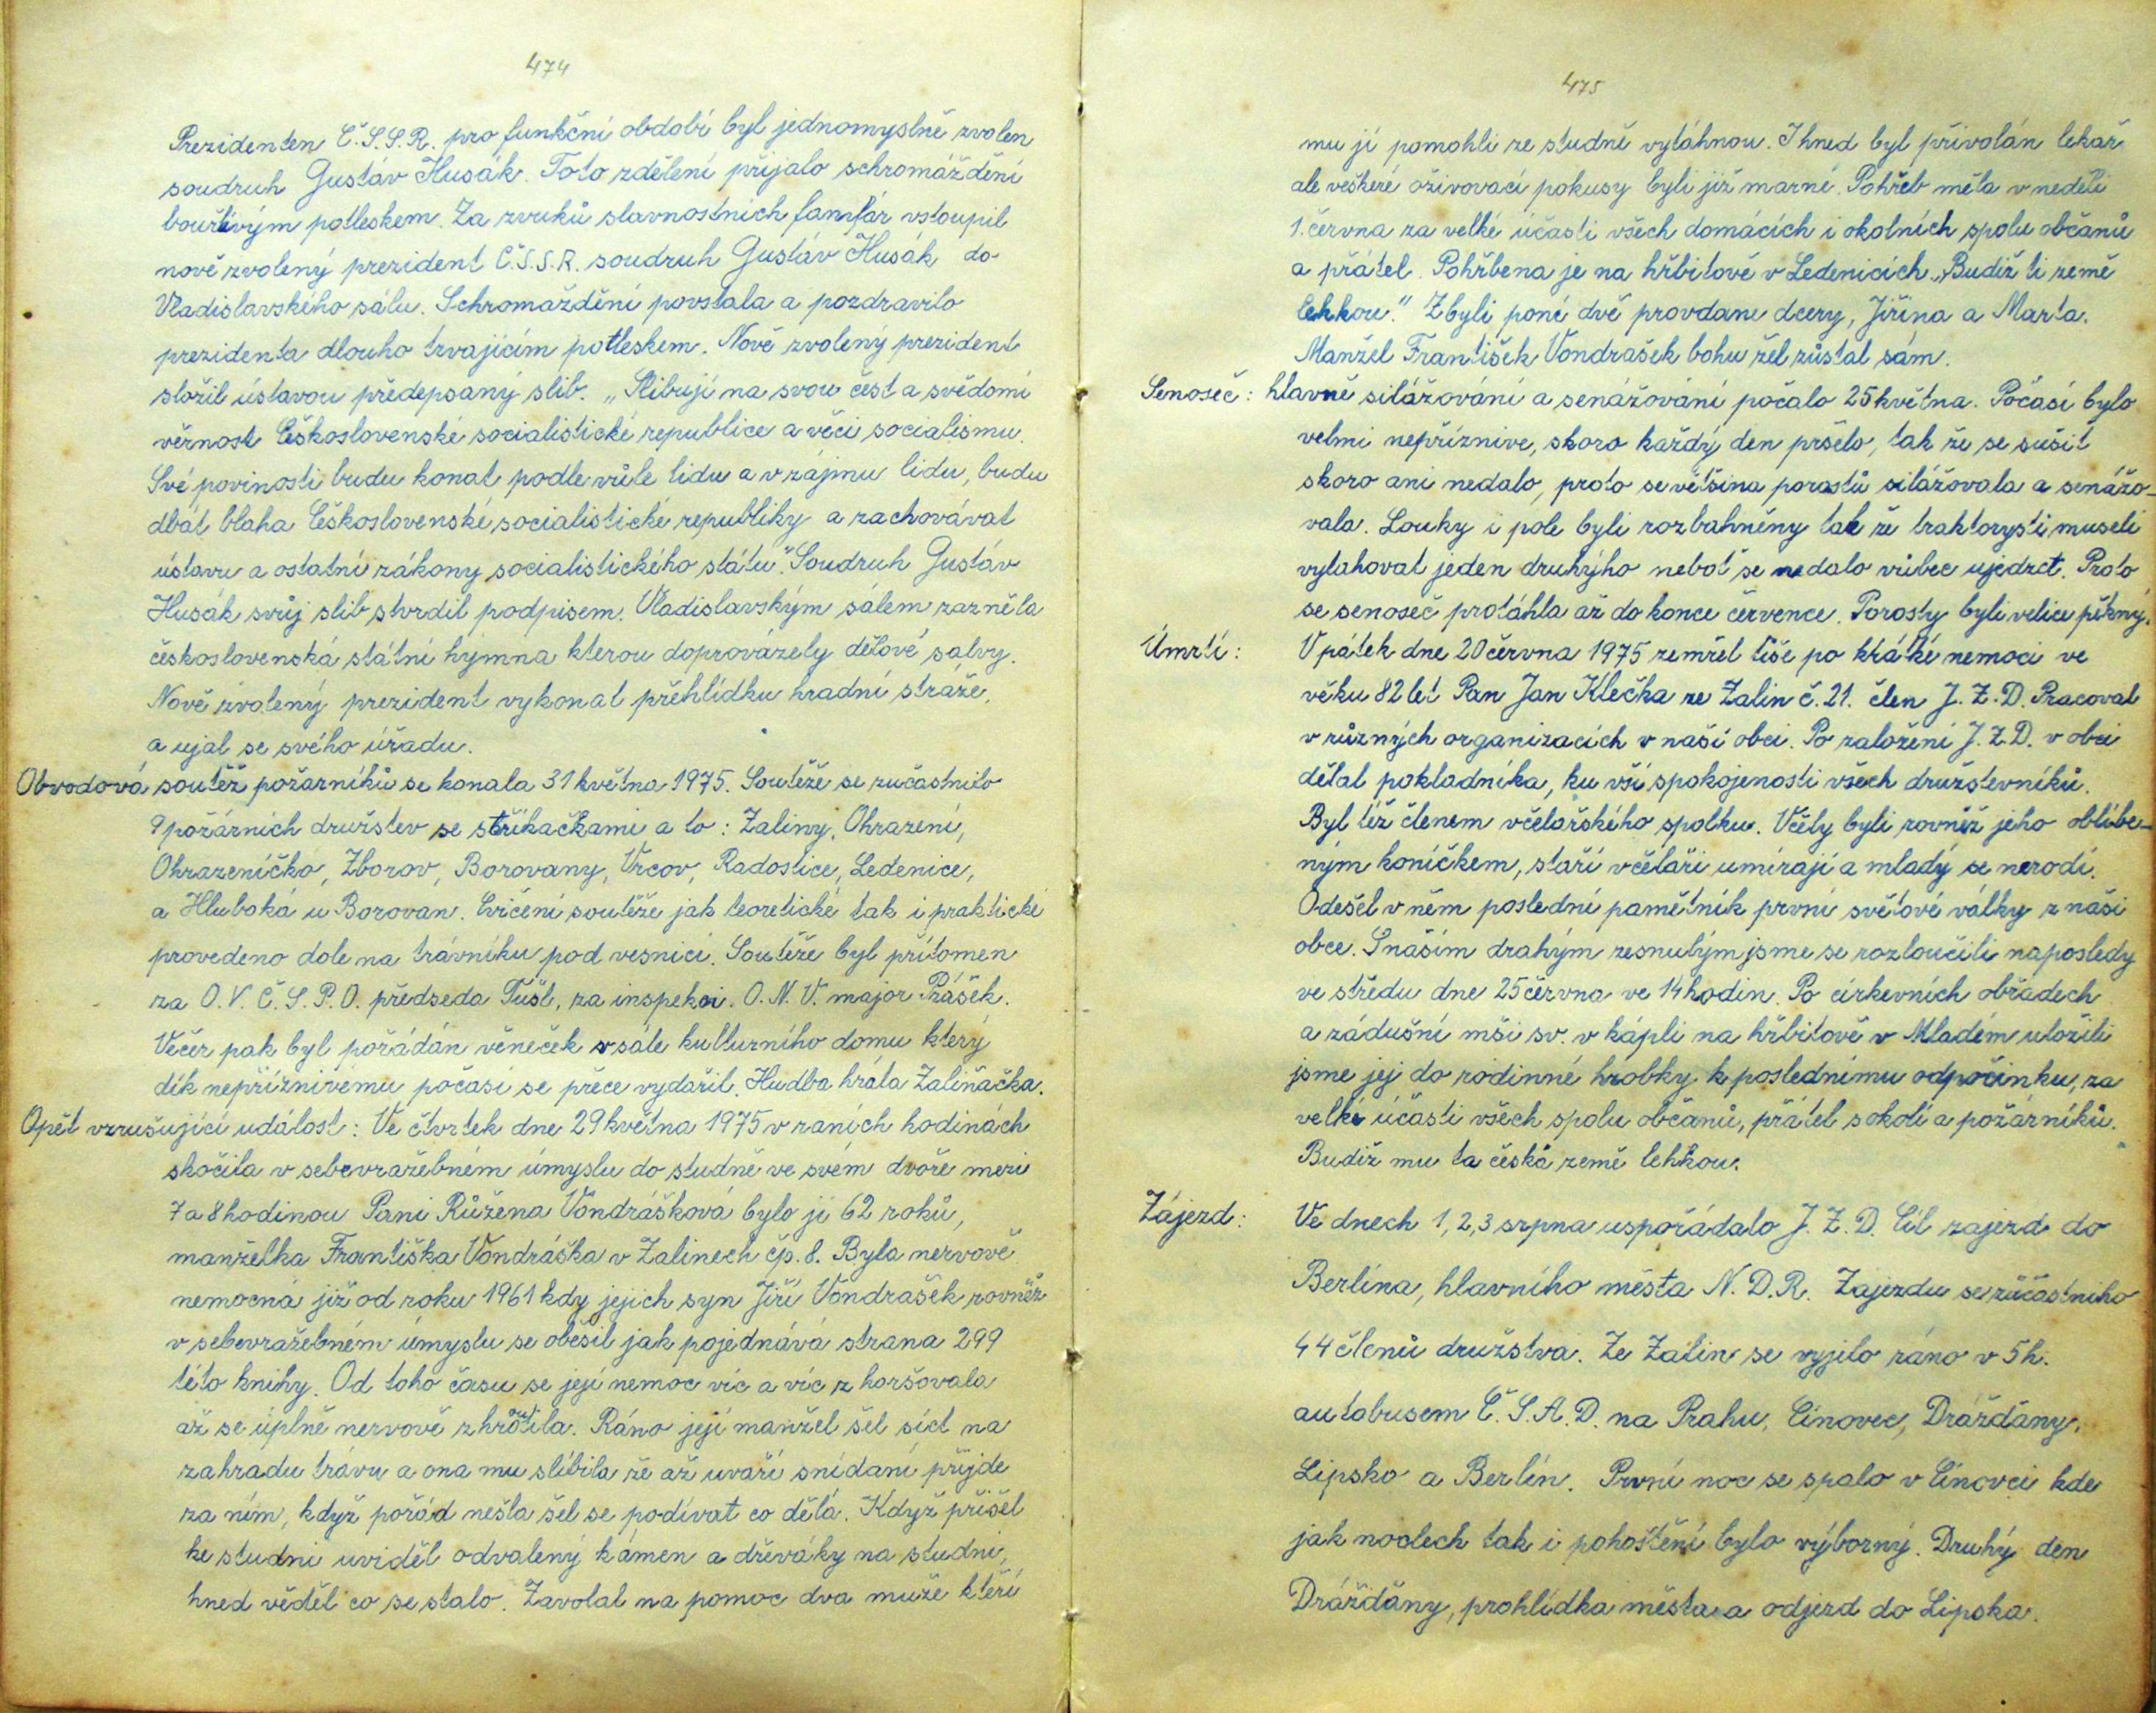 474
Prezidenten Č.S.S.R. pro funkční období byl jednomyslně zvolen
soudruh Gustáv Husák. Toto zdělení přijalo schromáždění
bouřlivým potleskem. Za zvuků slavnostních fanfár vstoupil
nově zvolený prezident Č.S.S.R. soudruh Gustáv Husák do
Vladislavského sálu. Schromáždění povstala a pozdravilo
prezidenta dlouho trvajícím potleskem. Nově zvolený prezident
složil ústavou předepsaný slib. „Slibuji na svou čest a svědomí
věrnost Československé socialistické republice a věci socialismu.
Své povinosti budu konat podle vůle lidu a v zájmu lidu, budu
dbát blaha Československé socialistické republiky a zachovávat
ústavu a ostatní zákony socialistického státu". Soudruh Gustáv
Husák svůj slib stvrdil podpisem. Vladislavským sálem zazněla
československá státní hymna kterou doprovázely dělové salvy.
Nově zvolený prezident vykonal přehlídku hradní stráže,
a ujal se svého úřadu.
Obvodová soutěž požárníků se konala 31 května 1975. Soutěže se zučastnilo
9 požárních družstev se stříkačkami a to: Zaliny, Ohrazení,
Ohrazeníčko, Zborov, Borovany, Vrcov, Radostice, Ledenice,
a Hluboká u Borovan. Cvičení soutěže jak teoretické tak i praktické
provedeno dole na trávníku pod vesnicí. Soutěže byl přítomen
za O.V.Č.S.P.O. předseda Tušl, za inspekci. O.N.V. major Prášek.
Večer pak byl pořádán věneček v sále kulturního domu který
dík nepříznivému počasí se přece vydařil. Hudba hrála Zaliňačka.
Opět vzrušující událost: Ve čtvrtek dne 29 května 1975 v raních hodinách
skočila v sebevražebném úmyslu do studně ve svém dvoře mezi
7 a 8 hodinou Paní Růžena Vondrášková bylo jí 62 roků,
manželka Františka Vondráška v Zalinech čp. 8. Byla nervově
nemocná již od roku 1961 kdy jejich syn Jiří Vondrašek rovněž
v sebevražebném úmyslu se oběsil jak pojednává strana 299
této knihy. Od toho času se její nemoc víc a víc z horšovala
až se úplně nervově zhroutila. Ráno její manžel šel síct na
zahradu trávu a ona mu slíbila že až uvaří snídaní přijde
za ním, když pořád nešla šel se podívat co dělá. Když přišel
ke studni uviděl odvalený kámen a dřeváky na studni,
hned věděl co se stalo. Zavolal na pomoc dva muže kteří
475
mu jí pomohli ze studně vytáhnou. Ihned byl přivolán lekař
ale veškeré oživovací pokusy byli již marné. Pohřeb měla v neděli
1. června za velké účasti všech domácích i okolních spolu občanů
a přátel. Pohřbena je na hřbitově v Ledenicích. „Budiž ti země
lehkou." Zbyli poní dvě provdané dcery, Jiřina a Marta.
Manžel František Vondrašek bohu žel zůstal sám.
Senoseč: hlavně silážování a senážování počalo 25 května. Počasí bylo
velmi nepříznive, skoro každý den pršelo, tak že se sušit
skoro ani nedalo, proto se většina porostů silážovala a senážo-
vala. Louky i pole byli rozbahněny tak že traktorysti museli
vytahovat jeden druhýho neboť se nedalo vůbec ujedzct. Proto
se senoseč protáhla až do konce července. Porosty byli velice pěkný.
Úmrtí: V pátek dne 20 června 1975 zemřel tiše po krátké nemoci ve
věku 82 let Pan Jan Klečka ze Zalin č. 21. člen J.Z.D. Pracoval
v různých organizacích v naší obci. Po založení J.Z.D. v obci
dělal pokladníka, ku vší spokojenosti všech družstevníků.
Byl též členem včelařského spolku. Včely byli rovněž jeho oblíbe-
ným koníčkem, staří včelaři umírají a mladý se nerodí.
Odešel v něm poslední pamětník první světové války z naší
obce. S naším drahým zesnulým jsme se rozloučili naposledy
ve středu dne 25 června ve 14 hodin. Po církevních obřadech
a zádušní mši sv. v kápli na hřbitově v Mladém uložili
jsme jej do rodinné hrobky k poslednímu odpočinku, za
velké účasti všech spolu občanů, přátel s okolí a požárníků.
Budiž mu ta česká země lehkou.
Zájezd: Ve dnech 1, 2, 3 srpna uspořádalo J.Z.D. Cíl zajezd do
Berlína, hlavního města N.D.R. Zajezdu se zůčastniho
44 členů družstva. Ze Zalin se vyjelo ráno v 5 h.
autobusem Č.S.A.D. na Prahu, Cínovec, Drážďany,
Lipsko a Berlín. První noc se spalo v Cínovci kde
jak noclech tak i pohoštění bylo výborný. Druhý den
Drážďány, prohlídka města a odjezd do Lipska.